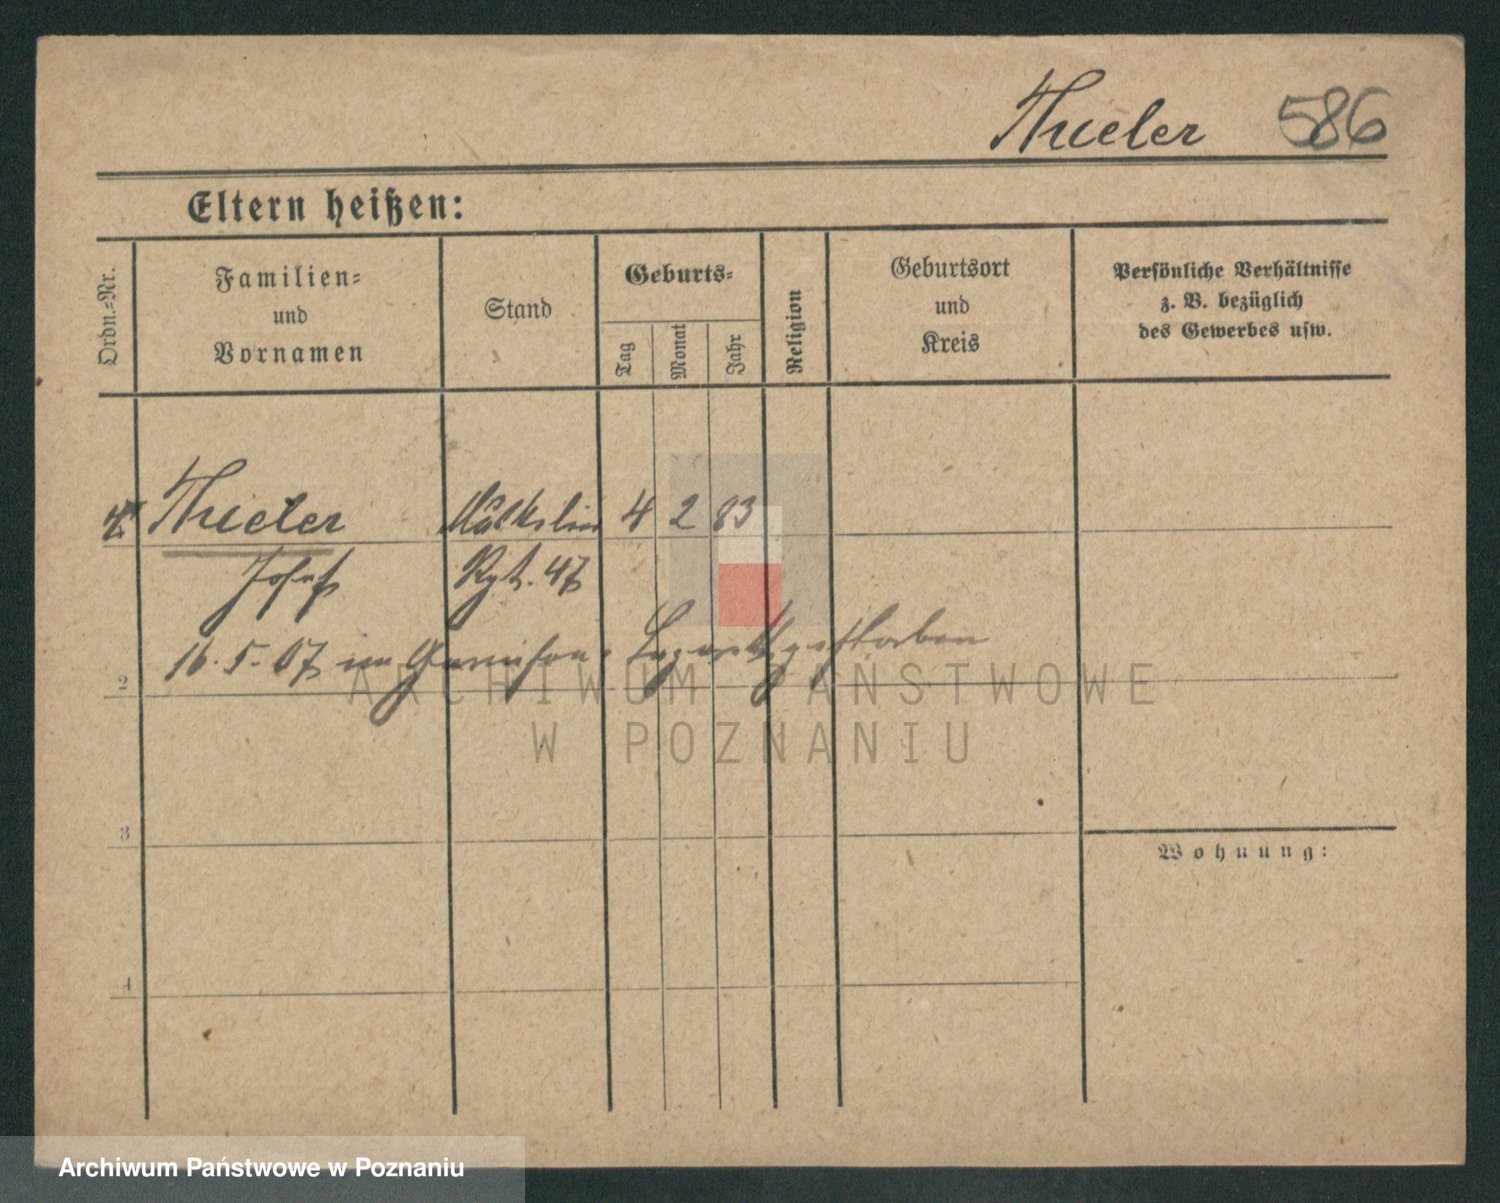 Thieler 586
Eltern heißen:
Ordn.-Nr.
Familien-
und
Vornamen
Stand
Geburts-
Tag
Monat
Jahr
Religion
Geburtsort
und
Kreis
Persönliche Verhältnisse
z. B. bezüglich
des Gewerbes usw.
Thieler 4 2 83
Josef Rgt. 47
16.5.07 im Garnison-Lazarett gestorben
2
3
4
Wohnung:
ARCHIWUM PAŃSTWOWE
W POZNANIU
Archiwum Państwowe w Poznaniu